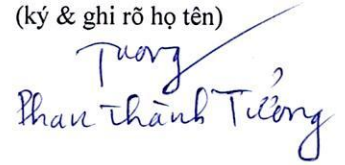 (ký & ghi rõ họ tên)
Tuong
Phan Thành Tưởng